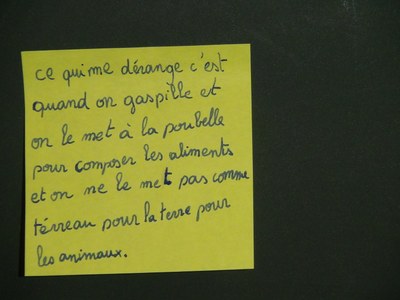 ce qui me dérange c'est
quand on gaspille et
on le met à la poubelle
pour composer les aliments
et on ne le met pas comme
térreau pour la terre pour
les animaux.